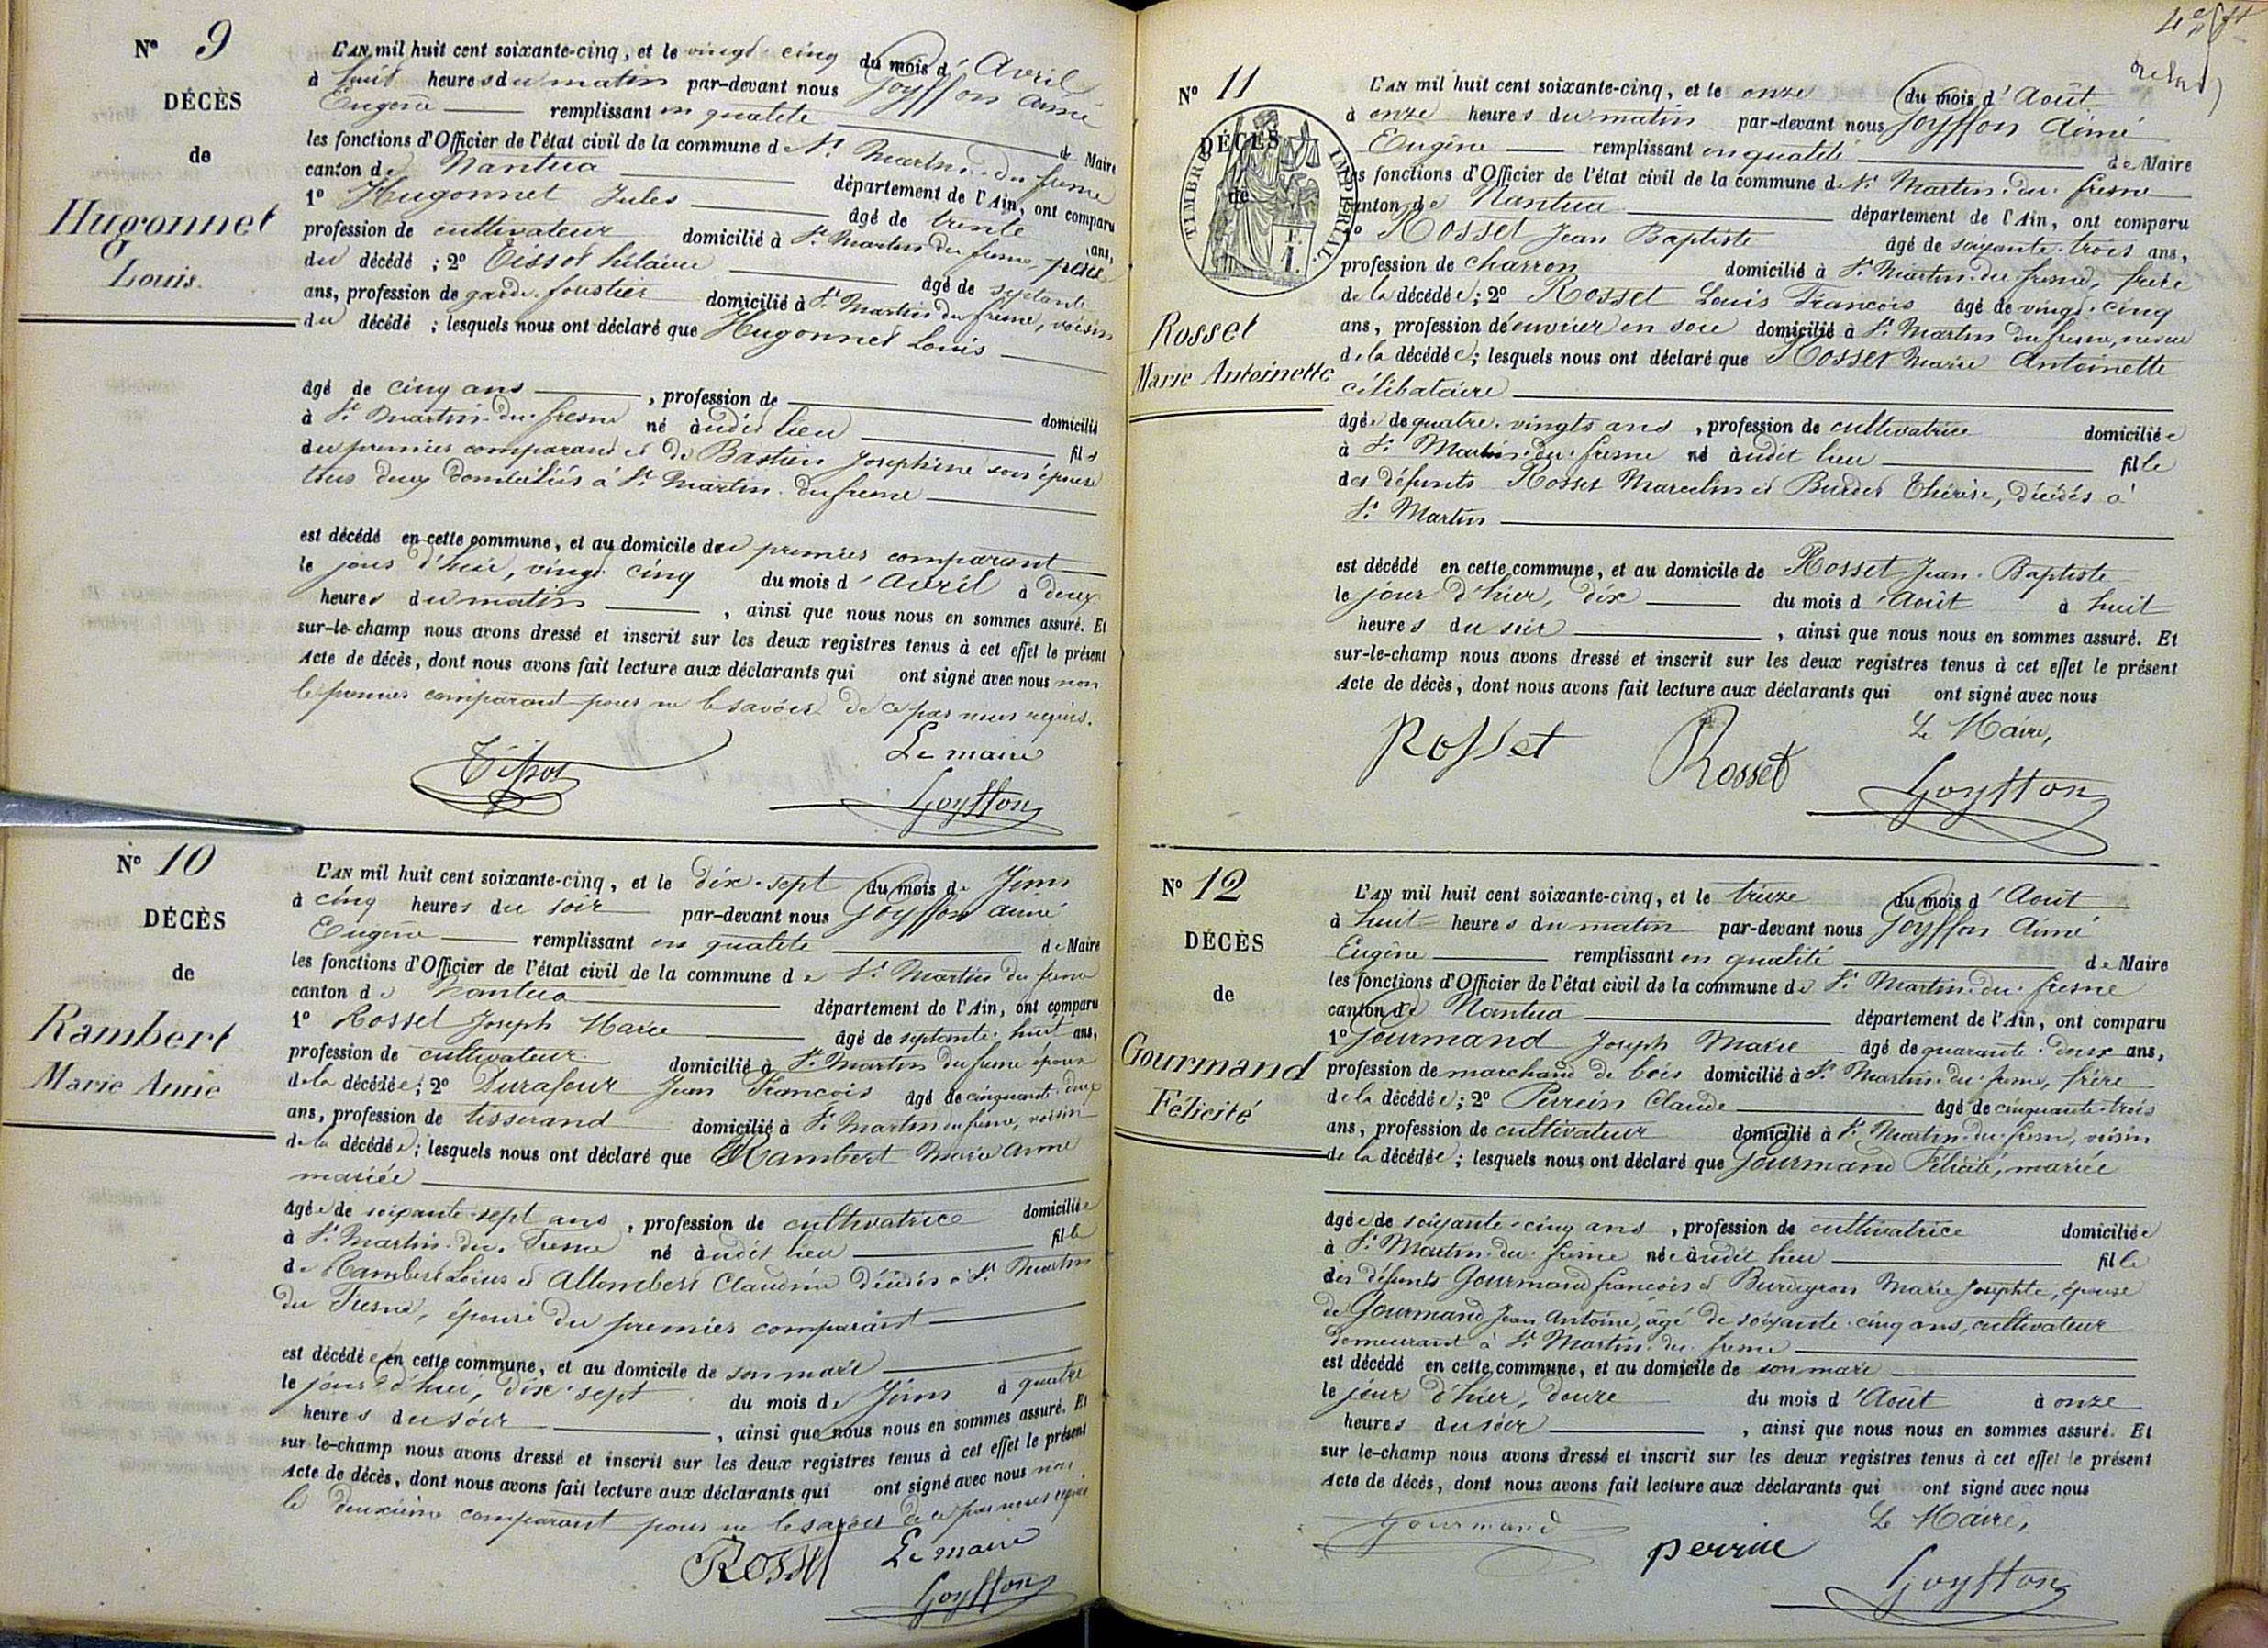 Nº 9
DÉCÈS
de
Hugonnet
Louis.
L'AN mil huit cent soixante-cinq, et le vingt-cinq du mois d'Avril
à huit heures du matin par-devant nous Goyffon Aimé
Eugène remplissant en qualité de Maire
les fonctions d'Officier de l'état civil de la commune de St Martin-du-fresne
canton de Nantua département de l'Ain, ont comparu
1º Hugonnet Jules âgé de trente ans,
profession de cultivateur domicilié à St Martin du fresne, père
du décédé ; 2º Tissot hilaire âgé de septante
ans, profession de garde-forestier domicilié à St Martin du fresne, voisin
du décédé ; lesquels nous ont déclaré que Hugonnet Louis
âgé de cinq ans , profession de domicilié
à St Martin-du-fresne né audit lieu fils
du premier comparant et de Bastien Joséphine son épouse
tous deux domiciliés à St Martin-du fresne
est décédé en cette commune, et au domicile du premier comparant
le jour d'hui, vingt cinq du mois d'avril à deux
heures du matin , ainsi que nous nous en sommes assuré. Et
sur-le-champ nous avons dressé et inscrit sur les deux registres tenus à cet effet le présent
Acte de décès, dont nous avons fait lecture aux déclarants qui ont signé avec nous non
le premier comparant pour ne le savoir de ce par nous requis.
Tissot
Le maire
Goyffon
Nº 10
DÉCÈS
de
Rambert
Marie Anne
L'AN mil huit cent soixante-cinq, et le dix-sept du mois de Juin
à cinq heures du soir par-devant nous Goyffon aimé
Eugène remplissant en qualité de Maire
les fonctions d'Officier de l'état civil de la commune de St Martin du fresne
canton de Nantua département de l'Ain, ont comparu
1º Rosset Joseph Marie âgé de septante-huit ans,
profession de cultivateur domicilié à St Martin du fresne époux
de la décédée ; 2º Durafour Jean François âgé de cinquante-deux
ans, profession de tisserand domicilié à St Martin du fresne, voisin
de la décédée ; lesquels nous ont déclaré que Rambert Marie Anne
mariée
âgée de soixante-sept ans , profession de cultivatrice domiciliée
à St Martin-du-Fresne né audit lieu fille
de Rambert Louis et Allombert Claudine décédés à St Martin
du Fresne, épouse du premier comparant
est décédée en cette commune, et au domicile de son mari
le jour d'hui, dix-sept du mois de Juin à quatre
heures du soir , ainsi que nous nous en sommes assuré. Et
sur le-champ nous avons dressé et inscrit sur les deux registres tenus à cet effet le présent
Acte de décès, dont nous avons fait lecture aux déclarants qui ont signé avec nous non
le deuxième comparant pour ne le savoir de ce par nous requis
Rosset
Le maire
Goyffon
Nº 11
DÉCÈS
de
TIMBRE IMPÉRIAL.
Rosset
Marie Antoinette
L'AN mil huit cent soixante-cinq, et le onze du mois d'Août
à onze heures du matin par-devant nous Goyffon Aimé
Eugène remplissant en qualité de Maire
les fonctions d'Officier de l'état civil de la commune de St Martin-du-fresne
canton de Nantua département de l'Ain, ont comparu
1º Rosset Jean Baptiste âgé de soixante-trois ans,
profession de charron domicilié à St Martin-du-fresne, frère
de la décédée ; 2º Rosset Louis François âgé de vingt-cinq
ans, profession d'ouvrier en soie domicilié à St Martin du fresne, neveu
de la décédée ; lesquels nous ont déclaré que Rosset Marie Antoinette
célibataire
âgée de quatre-vingts ans , profession de cultivatrice domiciliée
à St Martin-du-fresne né audit lieu fille
des défunts Rosset Marcelin et Burdet Thérèse, décédés à
St Martin
est décédé en cette commune, et au domicile de Rosset Jean-Baptiste
le jour d'hier, dix du mois d'Août à huit
heures du soir , ainsi que nous nous en sommes assuré. Et
sur-le-champ nous avons dressé et inscrit sur les deux registres tenus à cet effet le présent
Acte de décès, dont nous avons fait lecture aux déclarants qui ont signé avec nous
Rosset
Rosset
Le Maire,
Goyffon
Nº 12
DÉCÈS
de
Gourmand
Félicité
L'AN mil huit cent soixante-cinq, et le treize du mois d'Août
à huit heures du matin par-devant nous Goyffon Aimé
Eugène remplissant en qualité de Maire
les fonctions d'Officier de l'état civil de la commune de St Martin-du-fresne
canton de Nantua département de l'Ain, ont comparu
1º Gourmand Joseph Marie âgé de quarante-deux ans,
profession de marchand de bois domicilié à St Martin-du-fresne, frère
de la décédée ; 2º Perrein Claude âgé de cinquante-trois
ans, profession de cultivateur domicilié à St Martin-du-fresne, voisin
de la décédée ; lesquels nous ont déclaré que Gourmand Félicité, mariée
âgée de soixante-cinq ans , profession de cultivatrice domiciliée
à St Martin-du-fresne née audit lieu fille
des défunts Gourmand françois et Burdeyron Marie Josephte, épouse
de Gourmand Jean Antoine, âgé de soixante-cinq ans, cultivateur
demeurant à St Martin-du-fresne
est décédé en cette commune, et au domicile de son mari
le jour d'hier, douze du mois d'Août à onze
heures du soir , ainsi que nous nous en sommes assuré. Et
sur le-champ nous avons dressé et inscrit sur les deux registres tenus à cet effet le présent
Acte de décès, dont nous avons fait lecture aux déclarants qui ont signé avec nous
Gourmand
perrin
Le Maire,
Goyffon